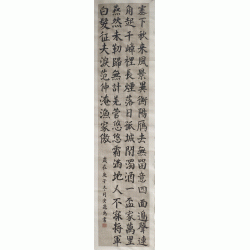 塞下秋來風景異衡陽雁去無留意四面邊聲連
角起千嶂裡長煙落日孤城閉濁酒一盃家萬里
燕然未勒歸無計羌管悠悠霜滿地人不寐將軍
白髮征夫淚范仲淹漁家傲
歲在